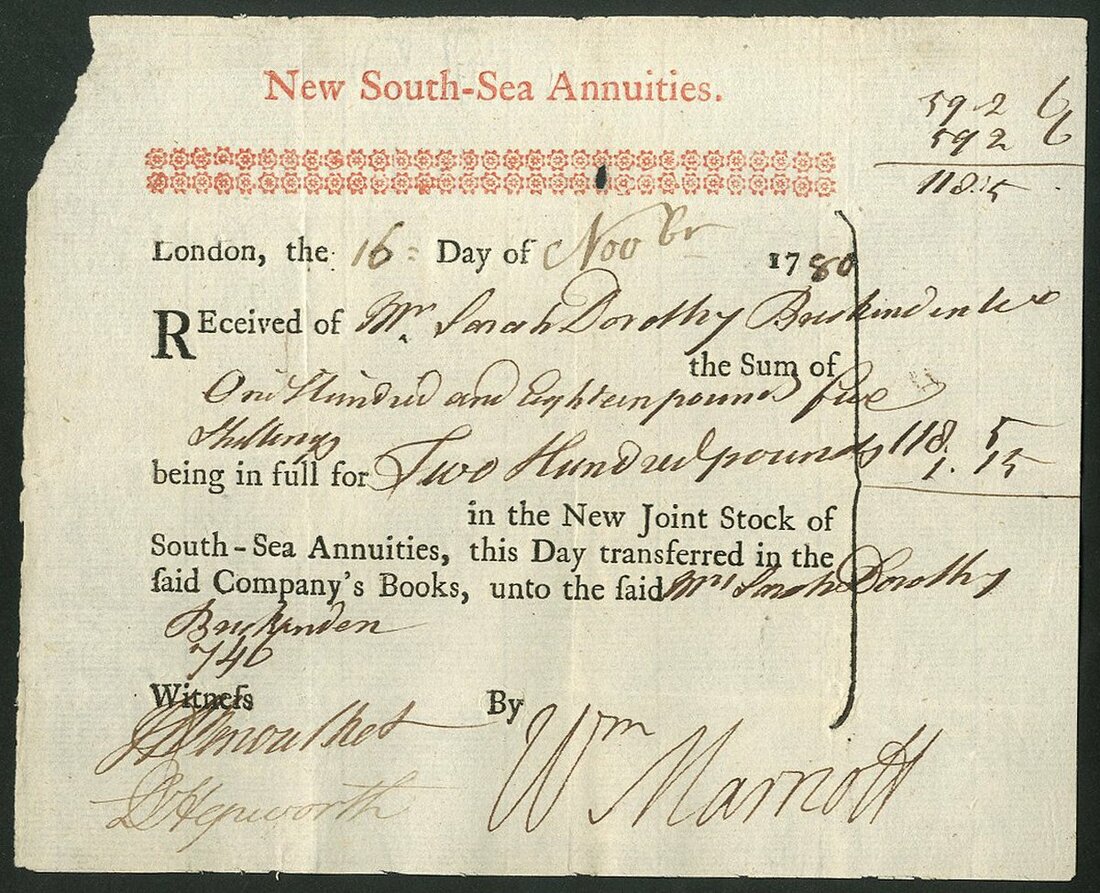 New South-Sea Annuities.
59 2 6
59 2 6
118 : 5
London, the 16 = Day of Novbr 1780
REceived of Mrs Sarah Dorothy
the Sum of
One Hundred and Eighteen pounds five
Shillings
being in full for Two Hundred pounds 118. 5
1. 15
in the New Joint Stock of
South-Sea Annuities, this Day transferred in the
ſaid Company's Books, unto the ſaid Mrs Sarah Dorothy
Buskinden
746
Witneſs By
D Hepworth Wm Marriott